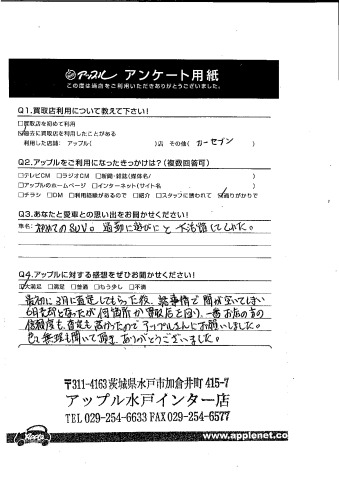 アップル アンケート用紙
この度は当店をご利用いただきありがとうございました。
Q1.買取店利用について教えて下さい!
□買取店を初めて利用
☑過去に買取店を利用したことがある
利用した店舗: アップル( )店 その他( カーセブン )
Q2.アップルをご利用になったきっかけは?(複数回答可)
□テレビCM □ラジオCM □新聞・雑誌(媒体名/ )
□アップルのホームページ □インターネット(サイト名 )
□チラシ □DM □利用経験があるので □紹介 □スタッフに誘われて ☑通りがかりで
Q3.あなたと愛車との思い出をお聞かせください!
車名: 初めてのSUV。通勤に遊びにと 大活躍してくれた。
Q4.アップルに対する感想をぜひお聞かせください!
☑大満足 □満足 □普通 □もう少し □不満
最初に3月に査定してもらった後、諸事情で間が空いてしまい
6月売却となったが 何箇所か買取店を回り、一番お店の方の
信頼度も、査定も高かったので アップルさんにお願いしました。
色々無理も聞いて頂き、ありがとうございました。
〒311-4163 茨城県水戸市加倉井町 415-7
アップル水戸インター店
TEL 029-254-6633 FAX 029-254-6577
Apple
www.applenet.co